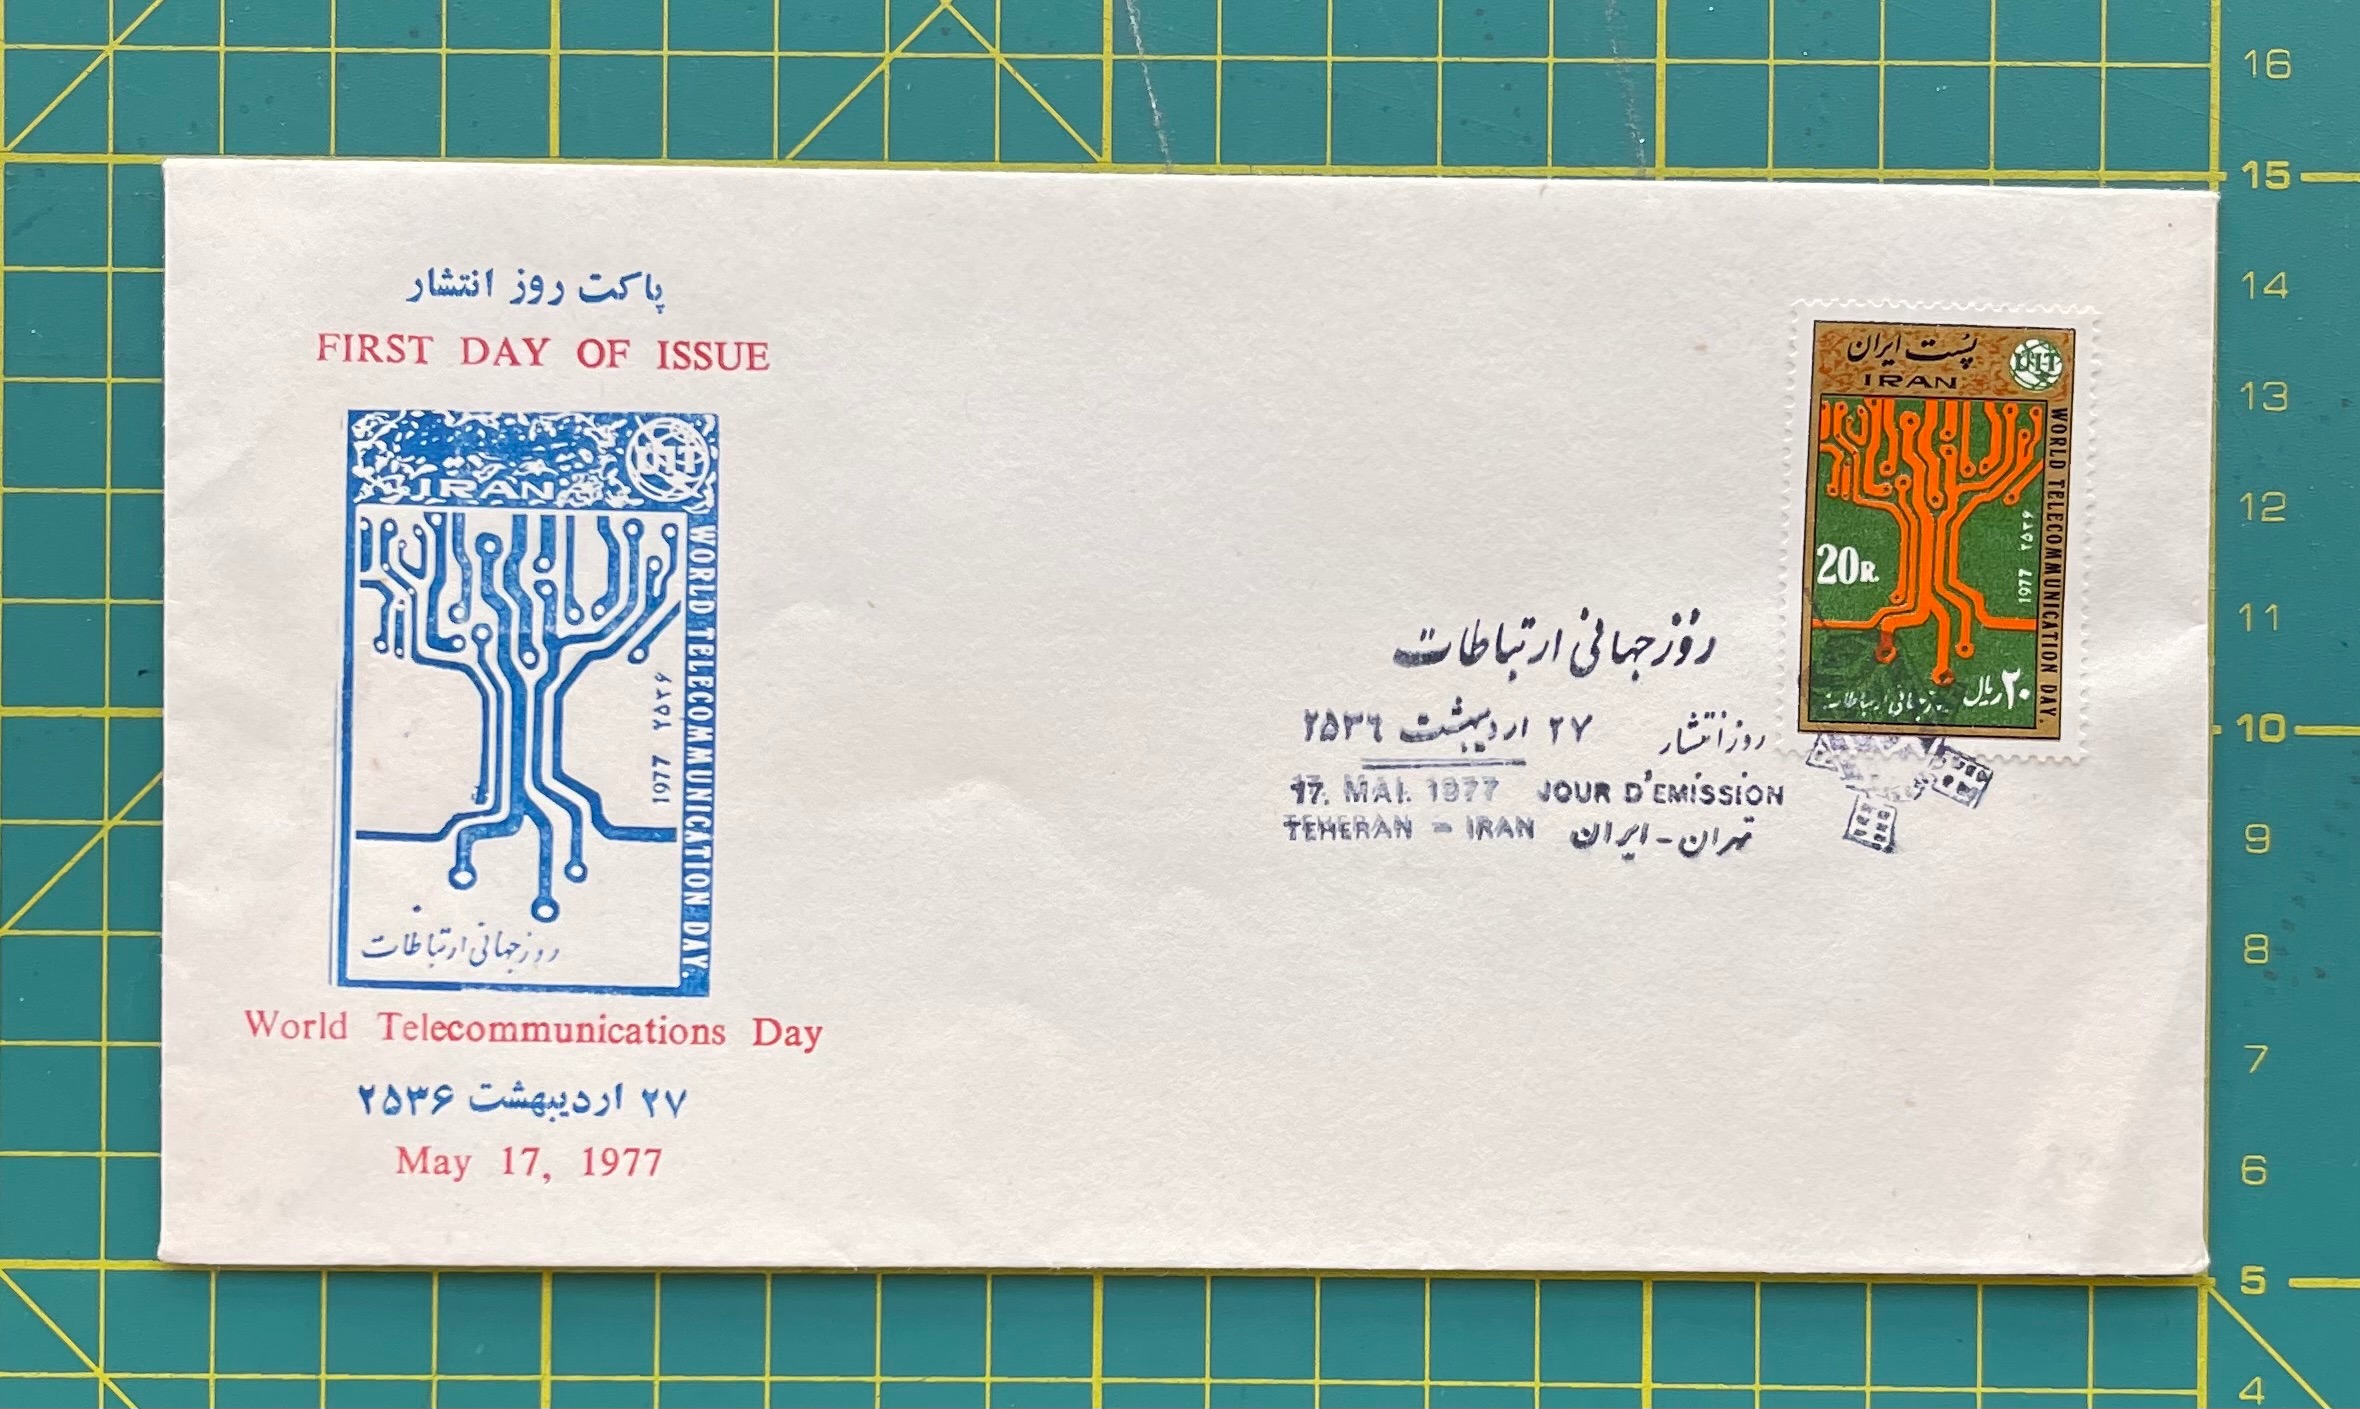 پاکت روز انتشار
FIRST DAY OF ISSUE
UIT
IRAN
WORLD TELECOMMUNICATION DAY.
1977 ۲۵۳۶
روز جهانی ارتباطات
World Telecommunications Day
۲۷ اردیبهشت ۲۵۳۶
May 17, 1977
روز جهانی ارتباطات
روز انتشار ۲۷ اردیبهشت ۲۵۳۶
17. MAI. 1977 JOUR D'EMISSION
TEHERAN - IRAN تهران - ایران
پست ایران
IRAN
UIT
WORLD TELECOMMUNICATION DAY.
20R.
1977 ۲۵۳۶
۲۰ ریال
روز جهانی ارتباطات
16
15
14
13
12
11
10
9
8
7
6
5
4